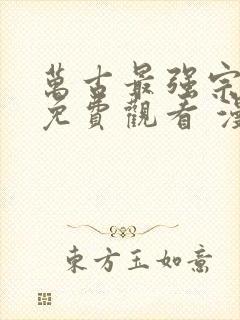 萬古最强宗
免費觀看 漫
東方玉如意